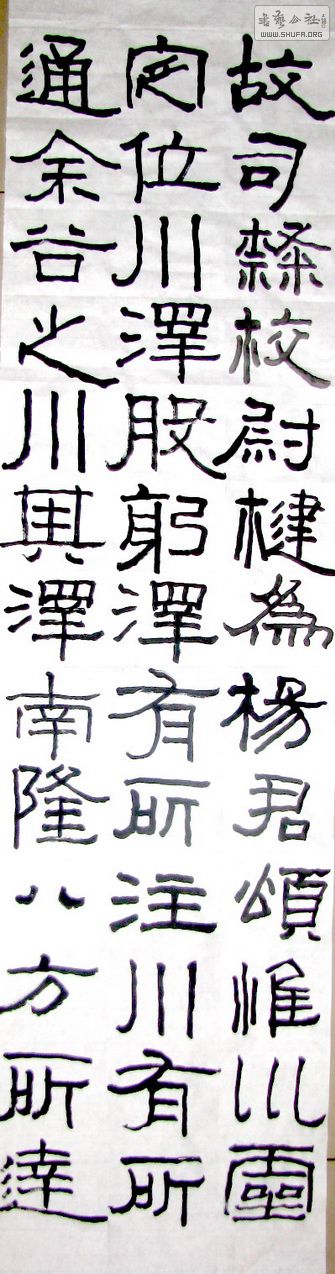 故司隸校尉楗為楊君頌惟巛靈
定位川澤股躬澤有所注川有所
通余谷之川其澤南隆八方所達
書藝公社
WWW.SHUFA.ORG